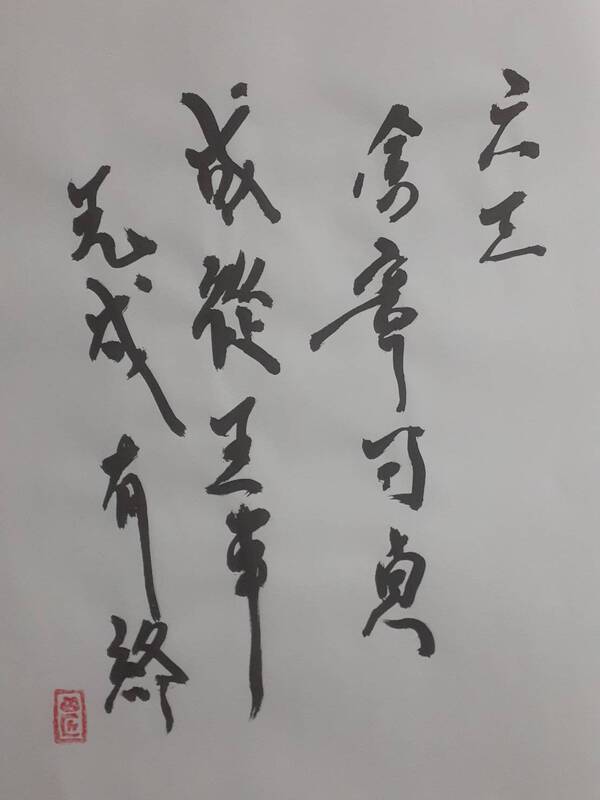 六三
含章可貞
或從王事
无成有終